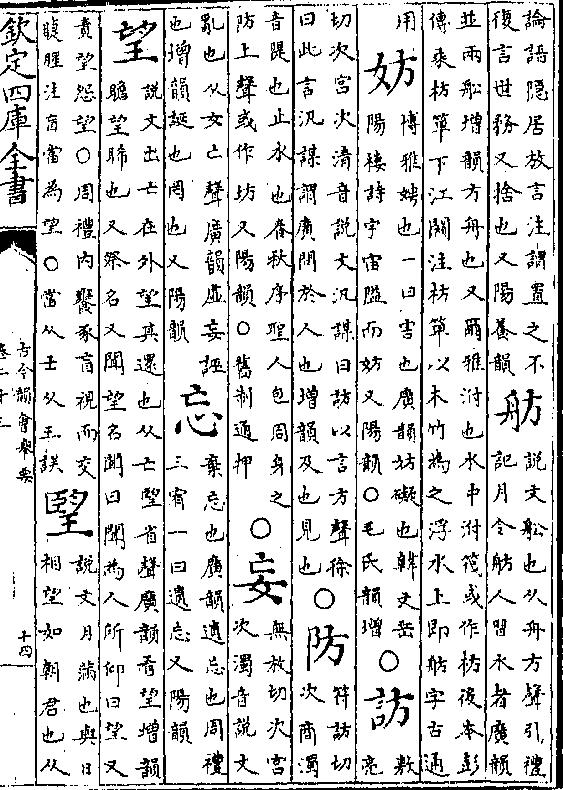 論語隱居放言注謂置之不
復言世務又捨也又陽養韻
舫
説文船也从舟方聲引禮
記月令舫人習水者廣韻
並兩船增韻方舟也又爾雅泭也水中泭筏或作枋後本彭
傳乘枋箄下江關注枋箄以木竹為之浮水上即舫字古通
用
妨
博雅娉也一曰害也廣韻妨礙也韓文岳
陽樓詩宇宙隘而妨又陽韻○毛氏韻增
○訪
敷
亮
切次宮次清音説文汎謀曰訪以言方聲徐
曰此言汎謀謂廣問於人也增韻及也見也
○防
符訪切
次商濁
音隄也止水也春秋序聖人包周身之
防上聲或作坊又陽韻○舊制通押
○妄
無放切次宮
次濁音説文
亂也从女亡聲廣韻虛妄誣
也增韻誕也罔也又陽韻
忘
棄忘也廣韻遺忘也周禮
三宥一曰遺忘又陽韻
望
説文出亡在外望其還也从亡朢省聲廣韻看望增韻
瞻望睎也又祭名又聞望名聞曰聞為人所仰曰望又
責望怨望○周禮内饔豕盲視而交
睫腥注盲當為望○當从壬从王誤
朢
説文月滿也與日
相望如朝君也从
欽定四庫全書
古今韻會舉要
卷二十三
十四